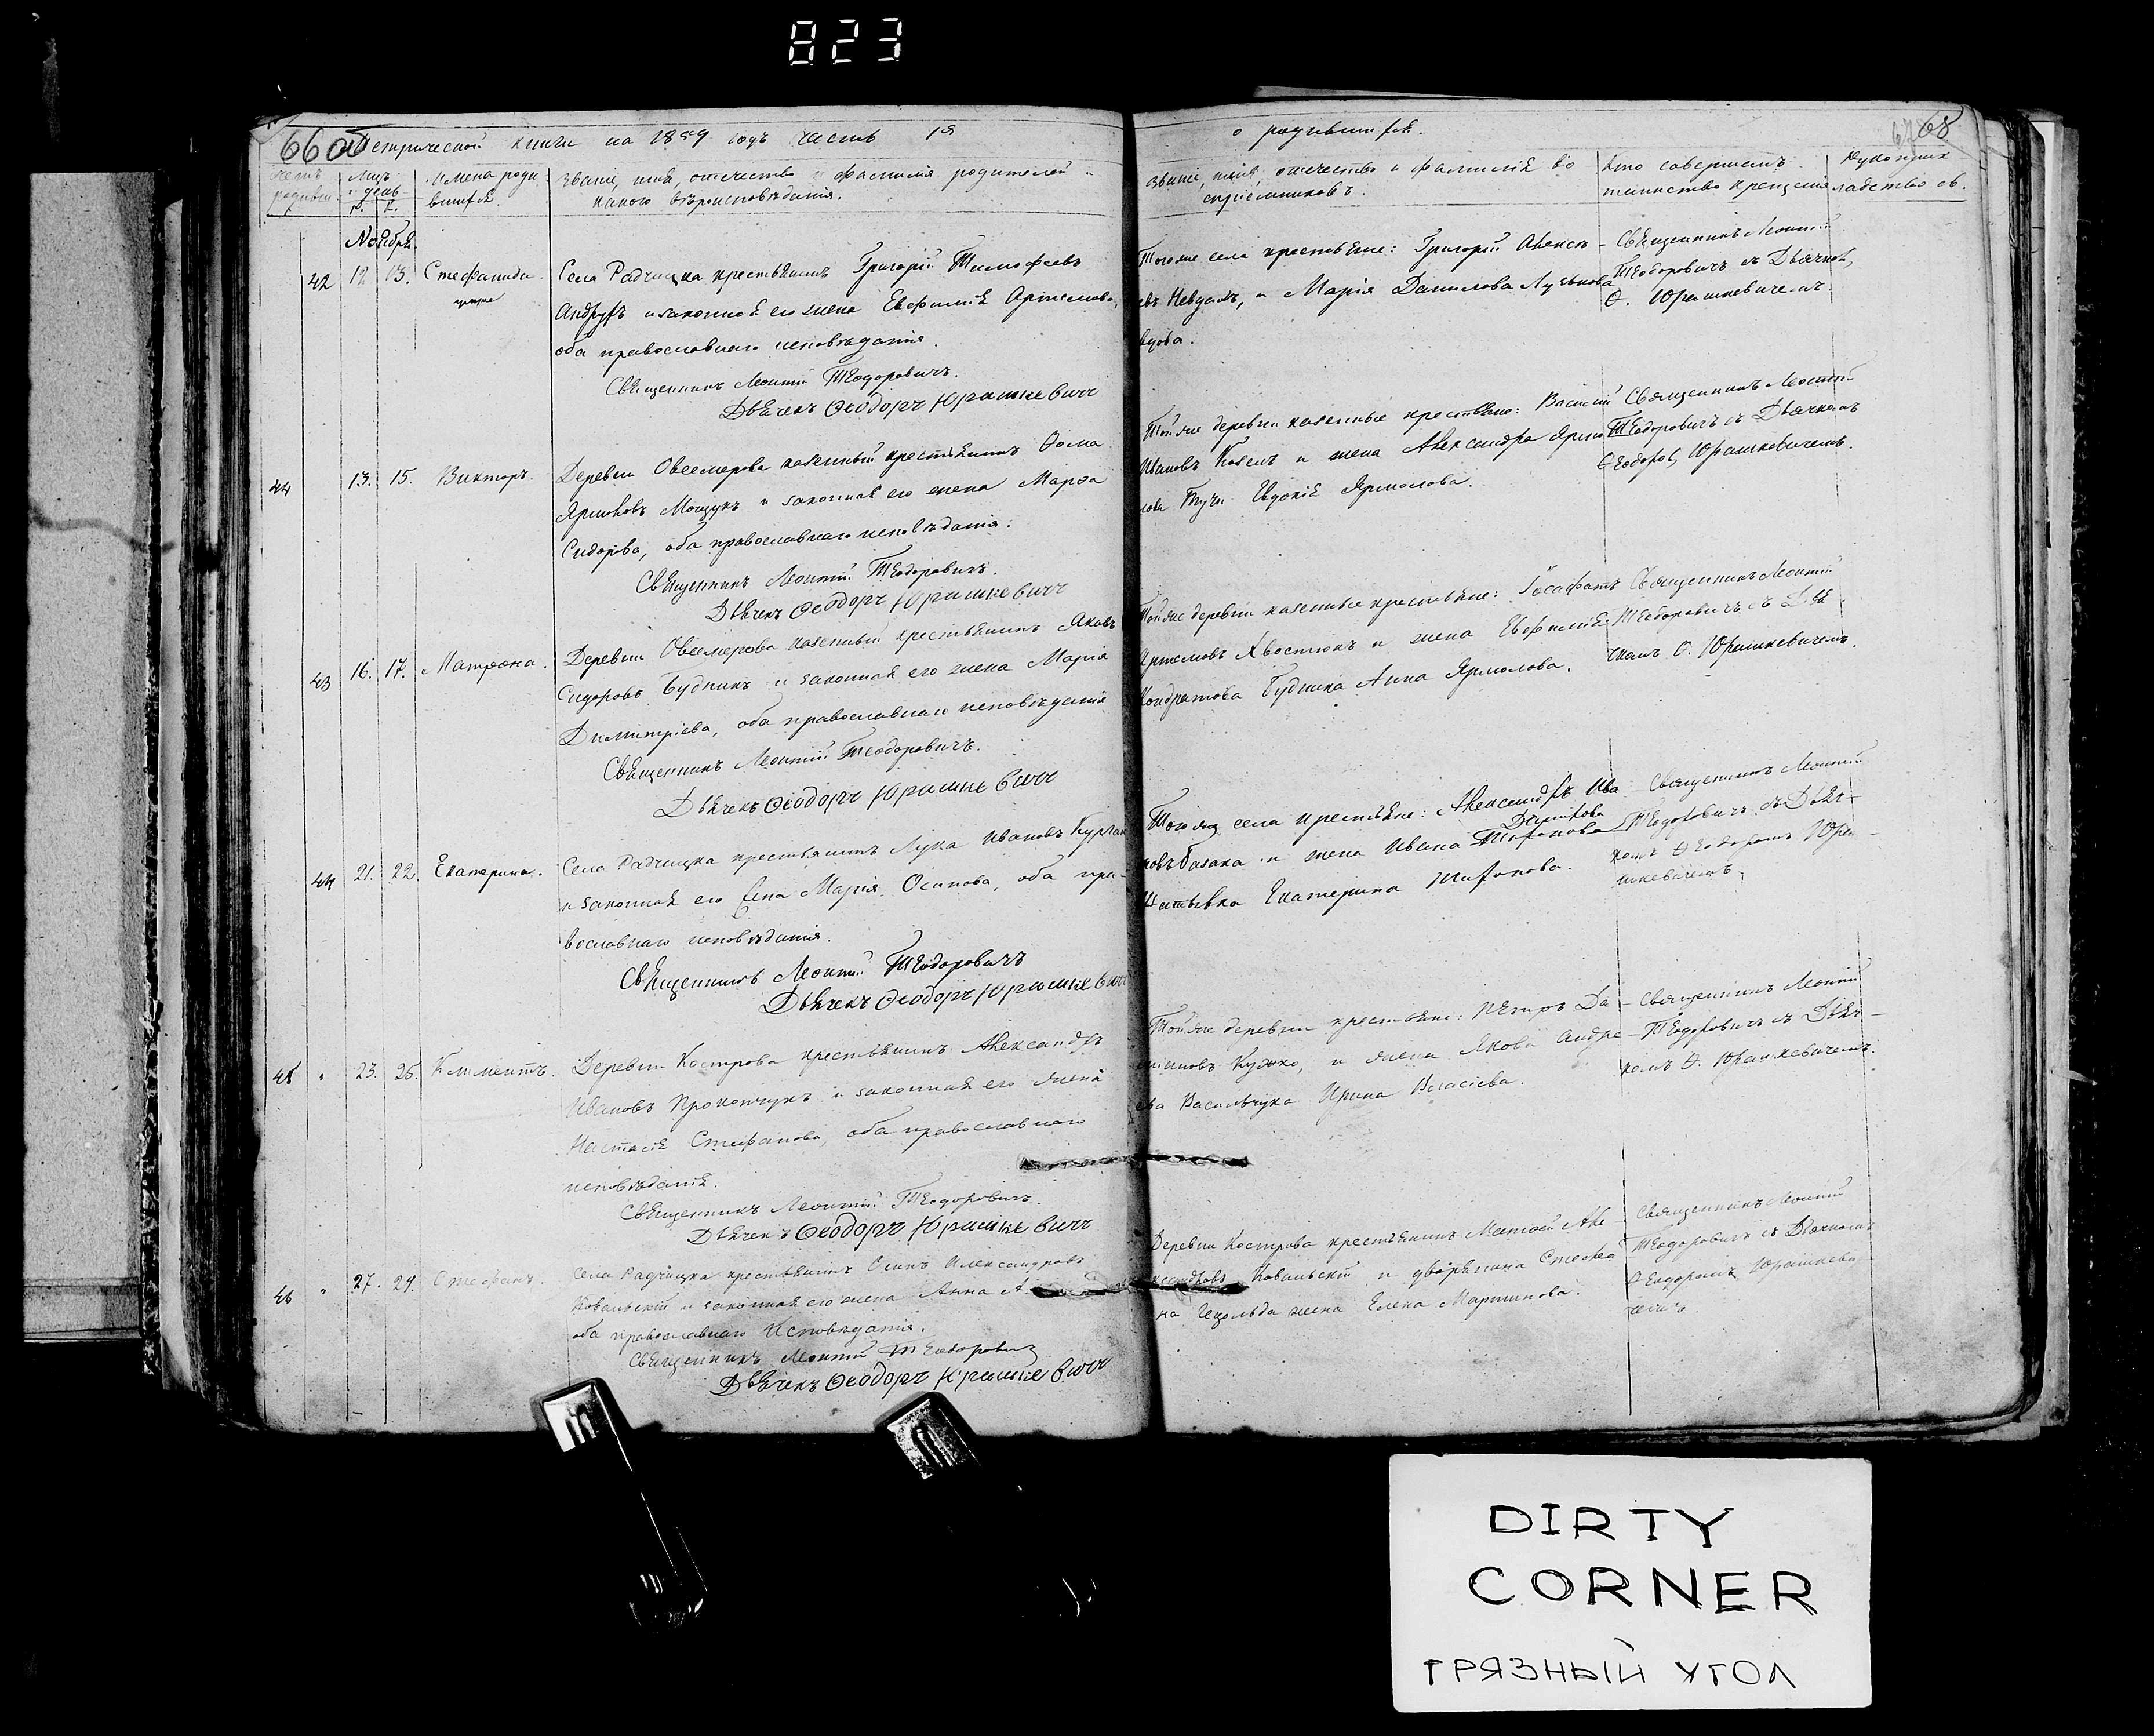 823
660б Метрической книги на 1859 годъ часть 1я
о родившихся.
68
Счетъ родивш.
Мцъ и день
р. к.
Имена роди
вшихся.
Званіе, имя, отечество и фамилія родителей
какого вѣроисповѣданія.
Званіе, имя, отечество и фамилія во
спріемниковъ.
Кто совершалъ
таинство крещенія
Рукоприк
ладство св.
Ноября
42 12 13. Стефанида
Села Радчицка крестьянинъ Григорій Тимофеевъ
и законная его жена Евфимія Артемова,
оба православнаго исповѣданія.
Священникъ Леонтій Теодоровичъ.
Дьячекъ Ѳеодоръ Юрашкевичъ
Тогоже села крестьяне: Григорій Алексѣ-
евъ Невдахъ, и Марія Данилова
вдова.
Священникъ Леонтій
Теодоровичъ съ Дьячком
Ѳ. Юрашкевичемъ
44 13. 15. Викторъ.
Деревни Овсемерова казенный крестьянинъ Ѳома
Ярмоловъ Мощукъ и законная его жена Марѳа
Сидорова, оба православнаго исповѣданія.
Священникъ Леонтій Теодоровичъ.
Дьячекъ Ѳеодоръ Юрашкевичъ
Тойже деревни казенные крестьяне: Василій
Ивановъ Козелъ и жена Александра Ярмо
лова Тучи Евдокія Ярмолова.
Священникъ Леонтій
Теодоровичъ съ Дьячкомъ
Ѳеодоромъ Юрашкевичемъ.
43 16. 17. Матрона.
Деревни Овсемерова казенный крестьянинъ Яковъ
Сидоровъ Будникъ и законная его жена Марія
Димитріева, оба православнаго исповѣданія
Священникъ Леонтій Теодоровичъ.
Дьячекъ Ѳеодоръ Юрашкевичъ
Тойже деревни казенные крестьяне: Іосафатъ
Артемовъ Хвостюкъ и жена Евфимія
Кондратова Будника Анна Ярмолова.
Священникъ Леонтій
Теодоровичъ съ Дья
чкомъ Ѳ. Юрашкевичемъ.
44 21. 22. Екатерина.
Села Радчицка крестьянинъ Лука Ивановъ Курган
и законная его жена Марія Осипова, оба пра-
вославнаго исповѣданія.
Священникъ Леонтій Теодоровичъ
Дьячекъ Ѳеодоръ Юрашкевичъ
Тогоже села крестьяне: Александръ Ива
новъ Базака и жена Ивана
Екатерина Тихонова.
Священникъ Леонтій
Теодоровичъ съ Дьяч-
комъ Ѳеодоромъ Юра-
шкевичемъ.
45 23. 25. Климентъ.
Деревни Кострова крестьянинъ Александръ
Ивановъ Прокопчукъ и законная его жена
Настасія Стефанова, оба православнаго
исповѣданія.
Священникъ Леонтій Теодоровичъ.
Дьячекъ Ѳеодоръ Юрашкевичъ
Тойже деревни крестьяне: Петръ Да-
миановъ Кудяко, и жена Якова Андре-
ева Васильчука Ирина Власіева.
Священникъ Леонтій
Теодоровичъ съ Дьяч-
комъ Ѳ. Юрашкевичемъ.
46 27. 29. Стефанъ.
Села Радчицка крестьянинъ Осипъ Александровъ
Ковальскій и законная его жена Анна А
оба православнаго Исповѣданія.
Священникъ Леонтій Теодоровичъ
Дьячекъ Ѳеодоръ Юрашкевичъ
Деревни Кострова крестьянинъ Матѳей Але-
ксандровъ Ковальскій и дворянина Стефа
на жена Елена Мартинова.
Священникъ Леонтій
Теодоровичъ съ Дьячкомъ
Ѳеодоромъ Юрашкеви
чемъ
DIRTY
CORNER
ГРЯЗНЫЙ УГОЛ